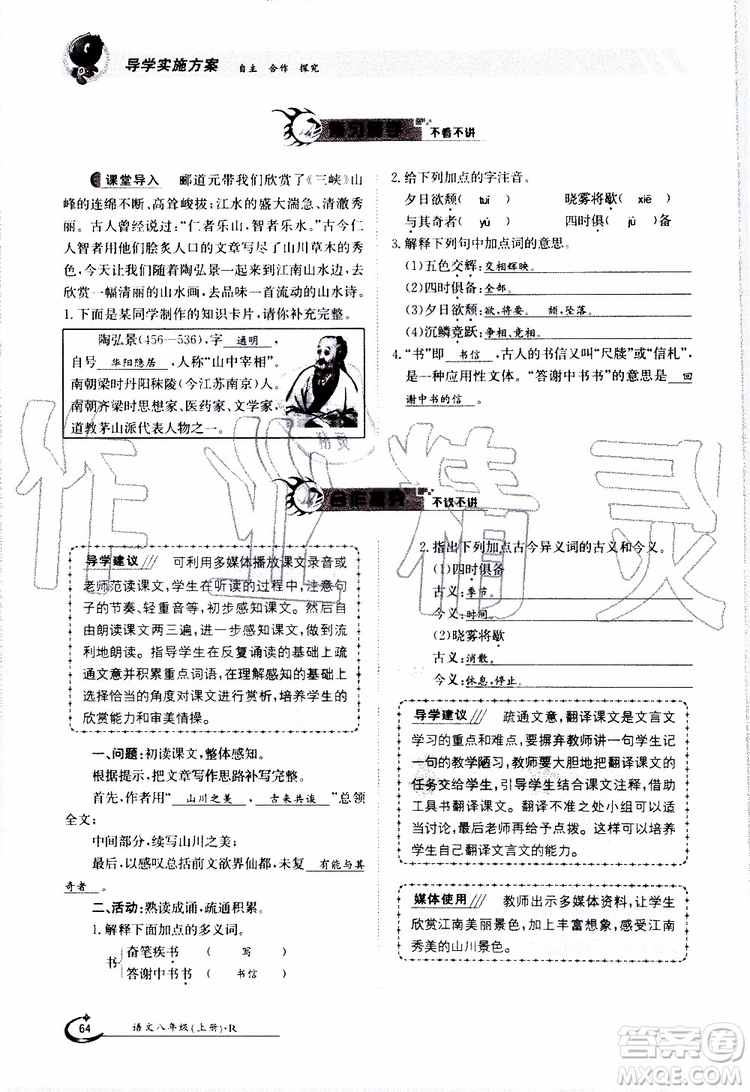 导学实施方案 自主 合作 探究
预习导学 不看不讲
课堂导入 郦道元带我们欣赏了《三峡》山
峰的连绵不断、高耸峻拔;江水的盛大湍急、清澈秀
丽。古人曾经说:“仁者乐山,智者乐水。”古今仁
人智者用他们脍炙人口的文章写尽了山川草木的秀
色,今天让我们跟随着陶弘景来到江南山水边,去
欣赏一幅清丽的山水画,一首流动的山水诗。
1.下面是某同学制作的知识卡片,请你补充完整。
陶弘景(456—536),字 通明 ,
自号 华阳隐居 ,有“山中宰相”。
南朝梁时丹阳秣陵(今江苏南京)人。
南朝齐梁时思想家、医药家、文学家,
道教茅山派代表人物之一。
2.给下列加点的字注音。
夕日欲颓( tuí ) 晓雾将歇( xiē )
与其奇者( yù ) 四时俱( jù )备
3.解释下列句中加点词的意思。
(1)五色交辉:交相辉映。
(2)四时俱备:全部。
(3)夕日欲颓:欲,将要。 颓,坠落。
(4)沉鳞竞跃:争相、竞相。
4.“书”即 书信 ,古人的书信又叫“尺牍”或“信札”,
是一种应用性文体。“答谢中书书”的意思是 回
谢中书的信 。
合作探究 不议不讲
导学建议 可利用多媒体播放课文录音或
老师范读课文,学生在听读的过程中,注意句
子的节奏、轻重音等,初步感知课文。然后自
由朗读课文两三遍,读准字音,读清句读,流
利地朗读。引导学生在反复诵读的基础上疏
通文意并积累重点词语,在理解感知的基础上
选择恰当的角度对课文进行赏析,培养学生的
欣赏能力和审美情操。
一、问题:初读课文,整体感知。
根据提示,把文章写作思路补写完整。
首先,作者用“ 山川之美 , 古来共谈 ”总领
全文;
中间部分,续写山川之美;
最后,以感叹总括前文欲界仙都,未复 有能与其
奇者 。
二、活动:熟读成诵,疏通积累。
1.解释下面加点的多义词。
书
奋笔疾书( 写 )
答谢中书书( 书信 )
2.指出下列加点古今异义词的古义和今义。
(1)四时俱备
古义:季节。
今义:时间。
(2)晓雾将歇
古义:消散。
今义:休息,停止。
导学建议 疏通文意,翻译课文是文言文
学习的重点和难点,要摒弃教师讲一句学生记
一句的教学陋习,教师要大胆地把翻译课文的
任务交给学生,引导学生结合课文注释,借助
工具书翻译课文。翻译不准之处小组可以适
当讨论,最后老师再给予点拨。这样可以培养
学生翻译文言文的能力。
媒体使用 教师出示多媒体资料,让学生
欣赏江南美丽景色,加上丰富想象,感受江南
秀美的山川景色。
作业精灵
精灵
64 语文八年级(上册)·R
答案圈
MXQE.COM